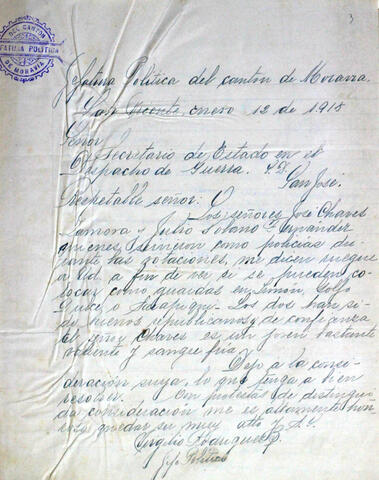 DEL CANTON
JEFATURA POLITICA
DE MORAVIA
3
Jefatura Política del cantón de Moravia.
San Vicente, enero 12 de 1918
Señor
Secretario de Estado en el
Despacho de Guerra. S.D.
San José.
Respetable señor:
Los señores José Chaves
Zamora y Julio Solano Fernández
quienes sirvieron como policías du
rante las votaciones, me dicen suegue
a Ud. a fin de ver si se pueden co
locar como guardas en Limón, Golfo
Dulce o Sarapiquí. Los dos han si
do buenos republicanos y de confianza
El joven Chaves es un joven bastante
valiente y sangre fría.
Dejo a la consi
deración suya, lo que tenga a bien
resolver. Con protestas de distingui
da consideración me es altamente hon
roso quedar su muy atto y S.
Virgilio Rodríguez
Jefe Político